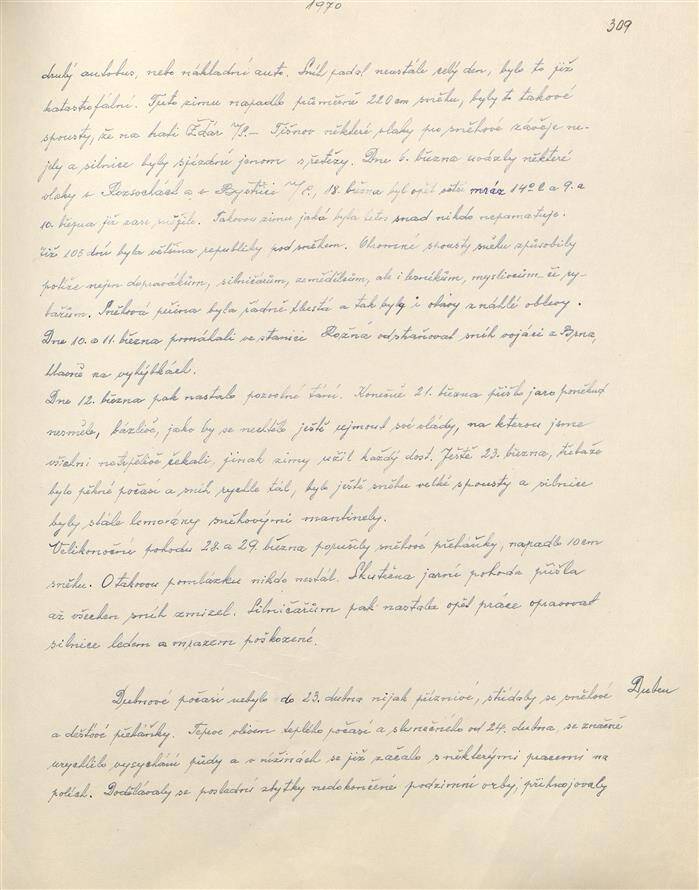 1970
309
druhý autobus, nebo nákladní auto. Sníh padal neustále celý den, bylo to již
katastrofální. Tuto zimu napadlo průměrně 220 cm sněhu, byly to takové
spousty, že na trati Žďár n/S. – Tišnov některé vlaky pro sněhové závěje ne-
jely a silnice byly sjízdné jenom s řetězy. Dne 6. března uvázly některé
vlaky v Rozsochách a v Bystřici n/P., 18. března byl opět větší mráz 14°C a 9. a
10. března již zase sněžilo. Takovou zimu jaká byla letos snad nikdo nepamatuje.
Již 105 dnů byla většina republiky pod sněhem. Ohromné spousty sněhu způsobily
potíže nejen dopravákům, silničářům, zemědělcům, ale i lesníkům, myslivcům či ry-
bářům. Sněhová peřina byla řádně tlustá a tak byly i obavy z náhlé oblevy.
Dne 10. a 11. března pomáhali ve stanici Rožná odstraňovat sníh vojáci z Brna,
hlavně na vyhýbkách.
Dne 12. března pak nastalo pozvolné tání. Konečně 21. března přišlo jaro poněkud
nesměle, bázlivě, jako by se nechtělo ještě ujmout své vlády, na kterou jsme
všichni netrpělivě čekali, jinak zimy užil každý dost. Ještě 23. března, třebaže
bylo pěkné počasí a sníh rychle tál, bylo ještě sněhu velké spousty a silnice
byly stále lemovány sněhovými mantinely.
Velikonoční pohodu 28. a 29. března porušily sněhové přeháňky, napadlo 10 cm
sněhu. O takovou pomlázku nikdo nestál. Skutečná jarní pohoda přišla
až všechen sníh zmizel. Silničářům pak nastala opět práce opravovat
silnice ledem a mrazem poškozené.
Dubnové počasí nebylo do 23. dubna nijak příznivé, střídaly se sněhové
Duben
a dešťové přeháňky. Teprve vlivem teplého počasí a slunečného od 24. dubna, se značně
urychlilo vysychání půdy a v nížinách se již začalo s některými pracemi na
polích. Dodělávaly se poslední zbytky nedokončené podzimní orby, přihnojovaly